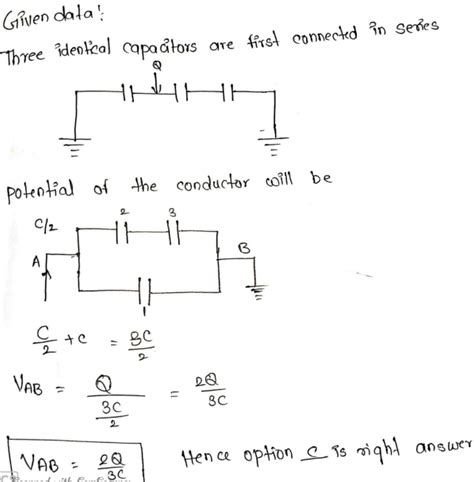 Given data!:
Three identical capacitors are first connected in series
Q
potential of the conductor will be
C/2 2 3
A B
1
C/2 + C = 3C/2
VAB = Q / 3C/2 = 2Q/3C
VAB = 2Q/3C Hence option C is right answer